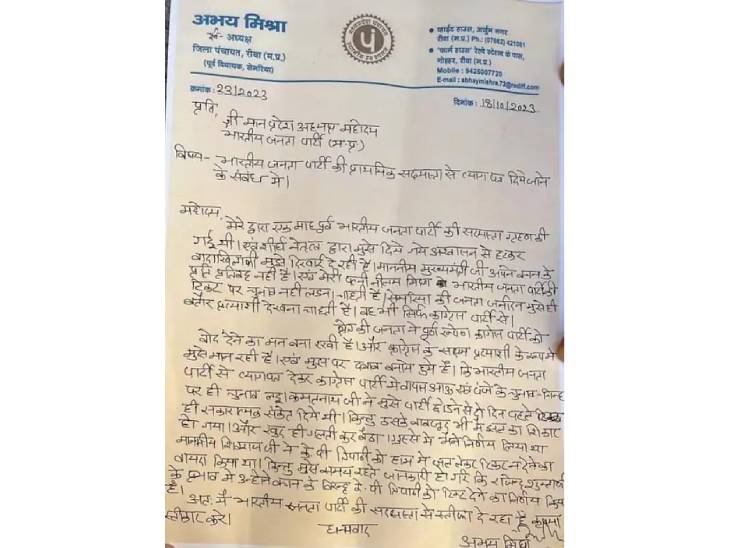 अभय मिश्रा
अध्यक्ष
जिला पंचायत, रीवा (म.प्र.)
(पूर्व विधायक, सेमरिया)
व्हाईट हाउस, अर्जुन नगर
रीवा (म.प्र.) Ph : (07662) 421061
'फार्म हाउस' रेल्वे स्टेशन के पास,
रीवा (म.प्र.)
Mobile : 9425007720
E-mail : abhaymishra.73@rediff.com
क्रमांक : 23/2023
दिनांक : 18/10/2023
प्रति,
श्री मान प्रदेश अध्यक्ष महोदय
भारतीय जनता पार्टी (म.प्र.)
विषय - भारतीय जनता पार्टी की प्राथमिक सदस्यता से त्याग पत्र दिये जाने
के संबंध में।
महोदय,
मेरे द्वारा एक माह पूर्व भारतीय जनता पार्टी की सदस्यता ग्रहण की
गई थी। एवं शीर्ष नेतृत्व द्वारा मुझे दिये गये आश्वासन से हटकर
मुझे दिखाई दे रही है। माननीय मुख्यमंत्री जी अपने वचन के
प्रति प्रतिबद्ध नहीं है। एवं मेरी पत्नी नीलम मिश्रा भारतीय जनता पार्टी की
टिकट पर चुनाव नहीं लड़ना चाहती हैं। सेमरिया की जनता मुझे ही
बतौर प्रत्याशी देखना चाहती है। वह भी सिर्फ कांग्रेस पार्टी से।
क्षेत्र की जनता ने कांग्रेस पार्टी को
वोट देने का मन बना रखी है। और कांग्रेस के सक्षम प्रत्याशी के रूप में
मुझे मान रही है। एवं मुझ पर दबाव बनाये हुये हैं। कि भारतीय जनता
पार्टी से त्यागपत्र देकर कांग्रेस पार्टी में वापस आऊं एवं पंजे के चुनाव चिन्ह
पर ही चुनाव लड़ूं। कमलनाथ जी ने मुझे पार्टी छोड़ने से दो दिन पहले
ही सकारात्मक संकेत दिये थे। किन्तु उसके बावजूद भी मैं का शिकार
हो गया। और खुद ही गलती कर बैठा। गुस्से में मैंने निर्णय लिया था
माननीय शिवराज जी ने के.पी. त्रिपाठी को टिकट न देने का
वायदा किया था। किन्तु मुझे समय रहते जानकारी हो गई कि
के प्रभाव में उन्होंने के विरूद्ध के.पी. त्रिपाठी को टिकट देने का निर्णय किया
है।
अतः मैं भारतीय जनता पार्टी की सदस्यता से स्तीफा दे रहा हूं कृपया
स्वीकार करें।
धन्यवाद
अभय मिश्रा